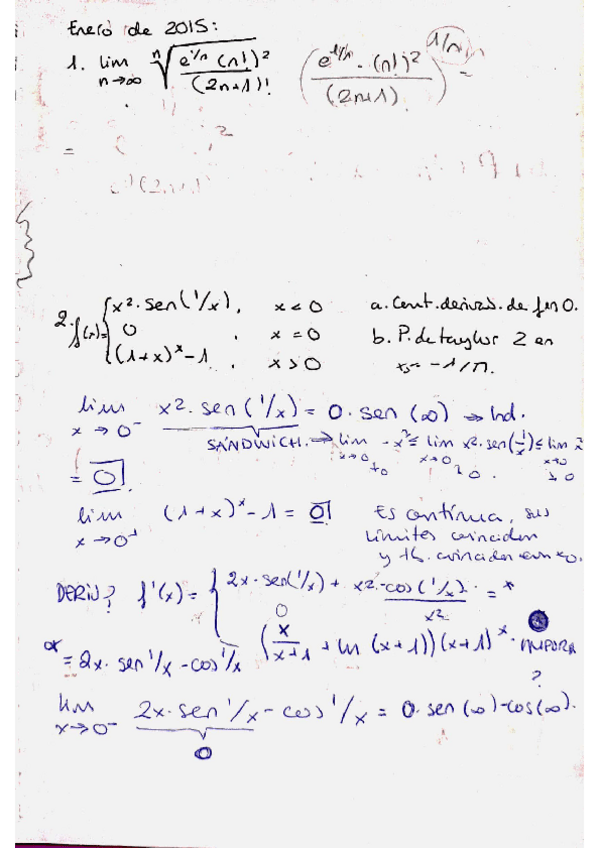 Enero de 2015:
1. lim n→∞ ⁿ√(e^(1/n) (n!)² / (2n+1)!) (e^(1/n) · (n!)² / (2n+1)!)^(1/n) =
=
2. f(x)= { x² · sen(1/x), x < 0 a. Cont. derivab. de f en 0.
0 , x = 0 b. P. de taylor 2 en
(1+x)^x - 1 , x > 0 x₀ = -1/π.
lim x→0⁻ x² · sen(1/x) = 0 · sen(∞) → Ind.
SÁNDWICH. → lim x→0 -x² ≤ lim x→0 x² · sen(1/x) ≤ lim x→0 x²
= 0 ↓0 ↓0 ↓0
lim x→0⁺ (1+x)^x - 1 = 0 Es contínua, sus
límites coinciden
y tb. coinciden en x₀.
DERIV? f'(x) = { 2x · sen(1/x) + x² · cos(1/x) / x² = *
0
(x/(x+1) + ln (x+1))(x+1)^x ·
* = 2x · sen 1/x - cos 1/x
?
lim x→0⁻ 2x · sen 1/x - cos 1/x = 0 · sen(∞) - cos(∞).
0